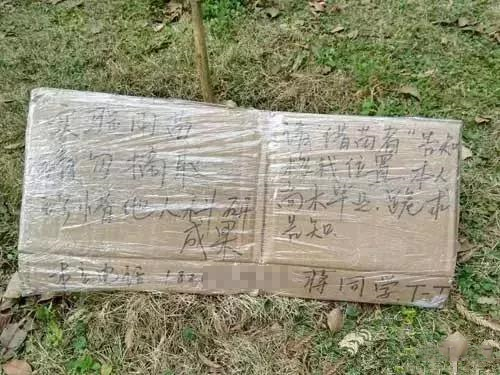 实验用苗
请勿摘取
珍惜他人科研
成果
请"借苗者"告知
移栽位置.本人
尚未毕业.跪求
告知.
电话 182
蒋同学 T-T